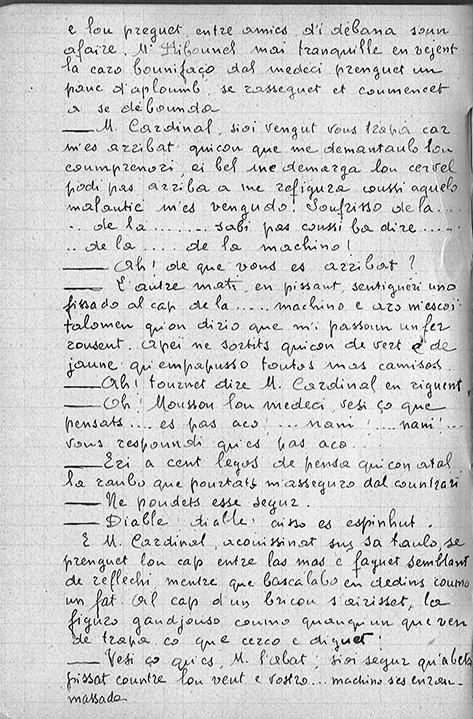 e lou preguet, entre amics, d'i débana soun
afaire. Mr Ribounel mai tranquille en vejent
la caro bounifaço dal medeci prenguet un
pauc d'aploumb, se rasseguet et coumencet
a se débounda
— M. Cardinal, sioi vengut vous trapa car
m'es arribat quicon que me demantaulo lou
coumprenori, ei bel me demarga lou cervel
podi pas arriba a me refigura coussi aquelo
malautié m'es vengudo. Soufrisso de la....
.. de la....... sabi pas coussi ba dire......
.. de la.... de la machino!
— Ah! de que vous es arribat?
— L'autre mati, en pissant, sentigueri uno
fissado al cap de la..... machino e aro m'escoi
talomen qu'on dirio que m'i passoun un fer
rousent. Apei ne sortits quicon de vert e de
jaune qu'empapusso toutos mas camisos.
— Ah! tournet dire M. Cardinal en riguent,
— Oh! Moussou lou medeci, vesi ço que
pensats.... es pas aco!... nani!... nani!...
vous respoundi qu'es pas aco.
— Eri a cent legos de pensa quicon atal.
la raubo que pourtats m'asseguro dal countrari
— Ne poudets esse segur.
— Diable! diable! aisso es espinhut.
E M. Cardinal, acouissinat sus sa taulo, se
prenguet lou cap entre las mas e faguet semblant
de reflechi mentre que bascalabo en dedins coumo
un fat. Al cap d'un briçou s'airisset, la
figuro gaudjouso coumo qualqu'un que ven
de trapa ço que cerco e diguet:
— Vesi ço qu'es, M. l'abat; sioi segur qu'abets
pissat countre lou vent e vostro... machino s'es enrau-
massado